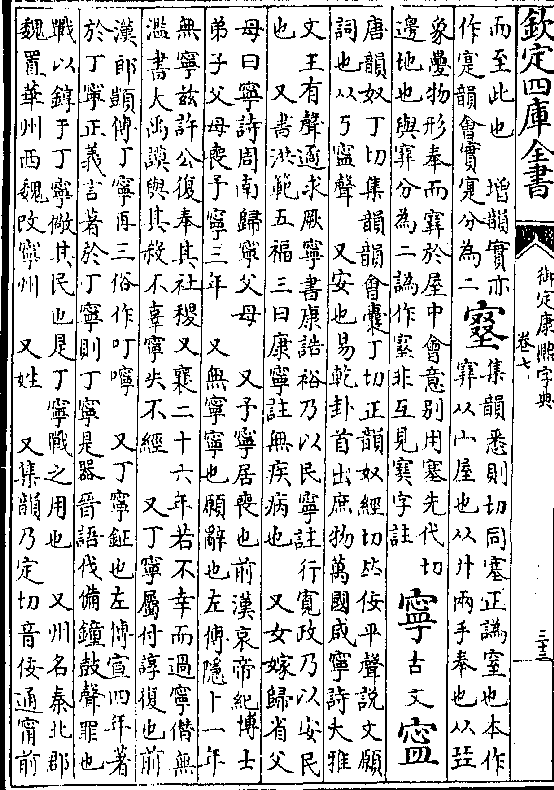 欽定四庫全書
御定康熙字典
卷七
三十三
而至此也 增韻實亦
作寔韻會實寔分為二
窸
集韻悉則切同塞正譌窒也本作
㝯从宀屋也从廾兩手奉也从㠭
象疊物形奉而㝯於屋中會意別用塞先代切
邊地也與㝯分為二譌作寒非互見㝙字註
寧
古文寍
唐韻奴丁切集韻韻會囊丁切正韻奴經切𠀤佞平聲說文願
詞也从丂寍聲 又安也易乾卦首出庶物萬國咸寧詩大雅
文王有聲遹求厥寧書康誥裕乃以民寧註行寬政乃以安民
也 又書洪範五福三曰康寧註無疾病也 又女嫁歸省父
母曰寧詩周南歸寧父母 又予寧居喪也前漢哀帝紀博士
弟子父母喪予寧三年 又無寧寧也願辭也左傳隱十一年
無寧茲許公復奉其社稷又襄二十六年若不幸而過寧僭無
濫書大禹謨與其殺不辜寧失不經 又丁寧屬付諄復也前
漢郎顗傳丁寧再三俗作叮嚀 又丁寧鉦也左傳宣四年著
於丁寧正義言著於丁寧則丁寧是器晉語伐備鐘鼓聲罪也
戰以錞于丁寧儆其民也是丁寧戰之用也 又州名秦北郡
魏置華州西魏改寧州 又姓 又集韻乃定切音佞通甯前